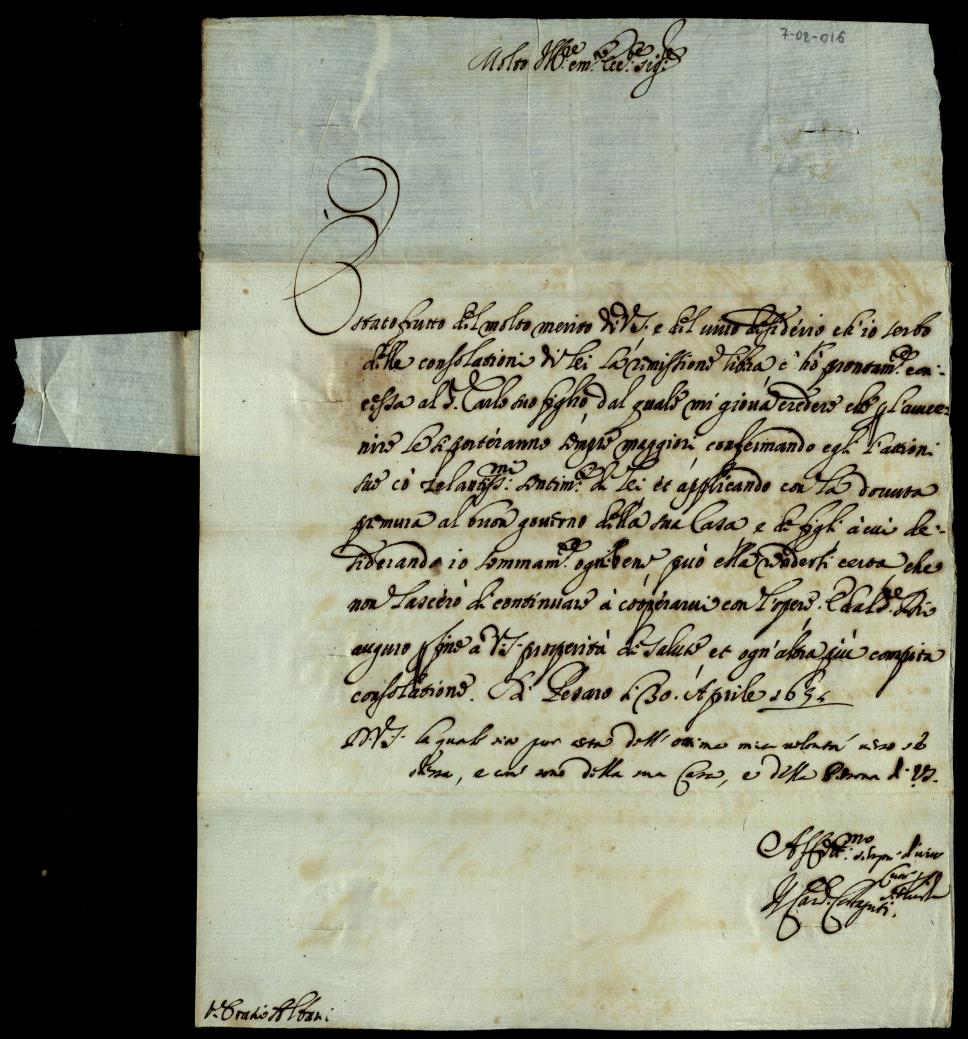 7-02-016
Molto Ill.re em.to Ecc.te Sig.re
È stato frutto del molto merito di V.S. e del vivo desiderio ch'io serbo
delle consolationi di lei la remissione libera c'hò prontam.te con-
cessa al S. Carlo suo figlio, dal quale mi giova credere che p l'avve-
nire le si porteranno sempre maggiori confermando egli l'attioni
sue cō zelantiss.mi sentim.ti di lei et applicando con la dovuta
premura al buon governo della sua Casa e de figli à cui de-
siderando io sommam.te ogni bene può ella renderli certa che
non lascerò di continuare à cooperarvi con l'opere. E
auguro p fine a V.S. prosperità di salute et ogn'altra più compita
consolatione. Di Pesaro li 30. Aprile
V.S. la quale sia pur certa dell' ottima mia volontà verso di
essa, e con della sua Casa, e della Persona di V.S.
Aff.mo sempre
Il Card.
S.r Oratio Albani